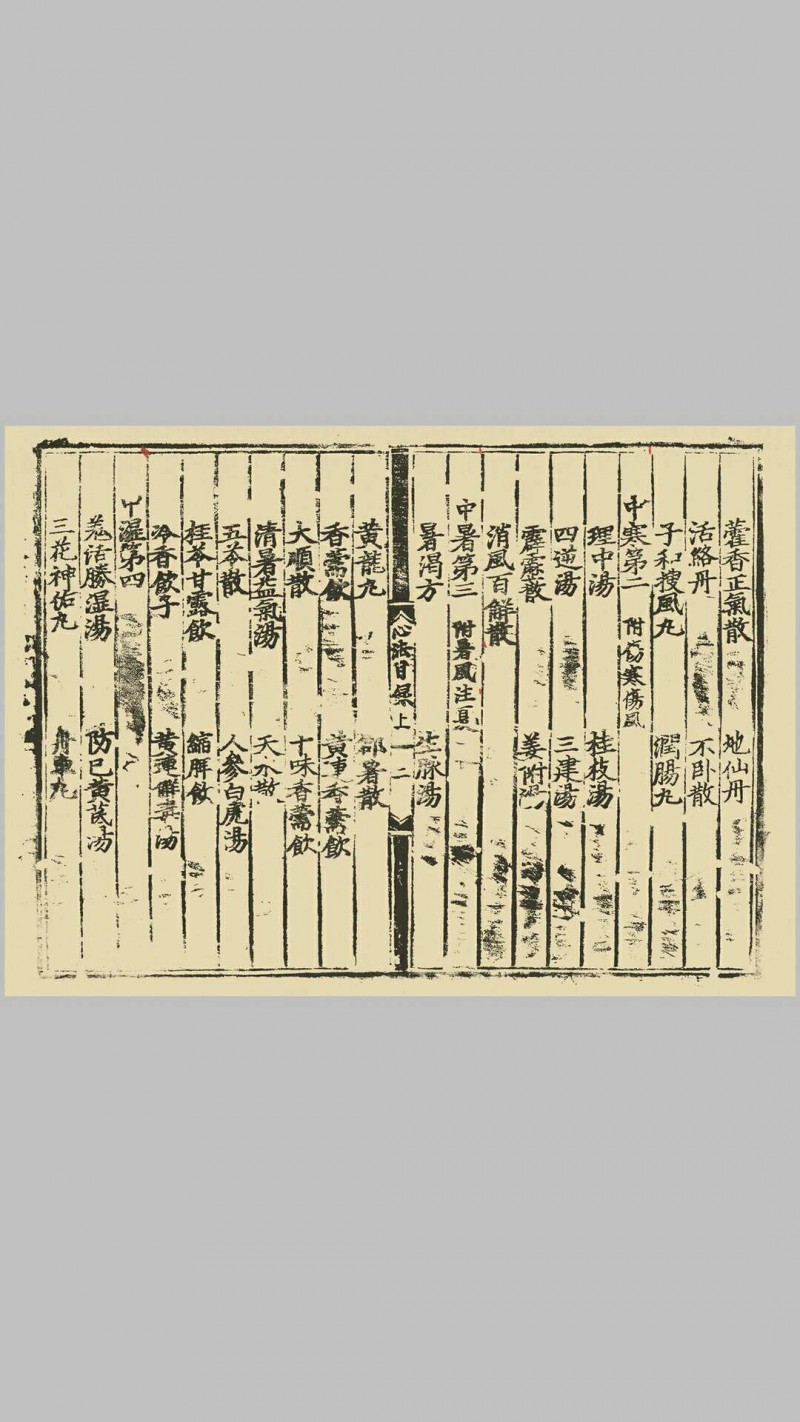 藿香正氣散　地仙丹
活絡丹　不卧散
子和搜風丸　潤腸丸
中寒第二　附傷寒傷風
理中湯　桂枝湯
四逆湯　三建湯
霹靂散　姜附湯
消風百解散
中暑第三　附暑風注夏
暑渴方　生脉湯
心法目録上　二
黄龍丸　却暑散
香薷飲　黄連香薷飲
大順散　十味香薷飲
清暑益氣湯　天水散
五苓散　人參白虎湯
桂苓甘露飲　縮脾飲
冷香飲子　黄連解毒湯
中濕第四
羗活勝濕湯　防已黄芪湯
三花神佑丸　舟車丸